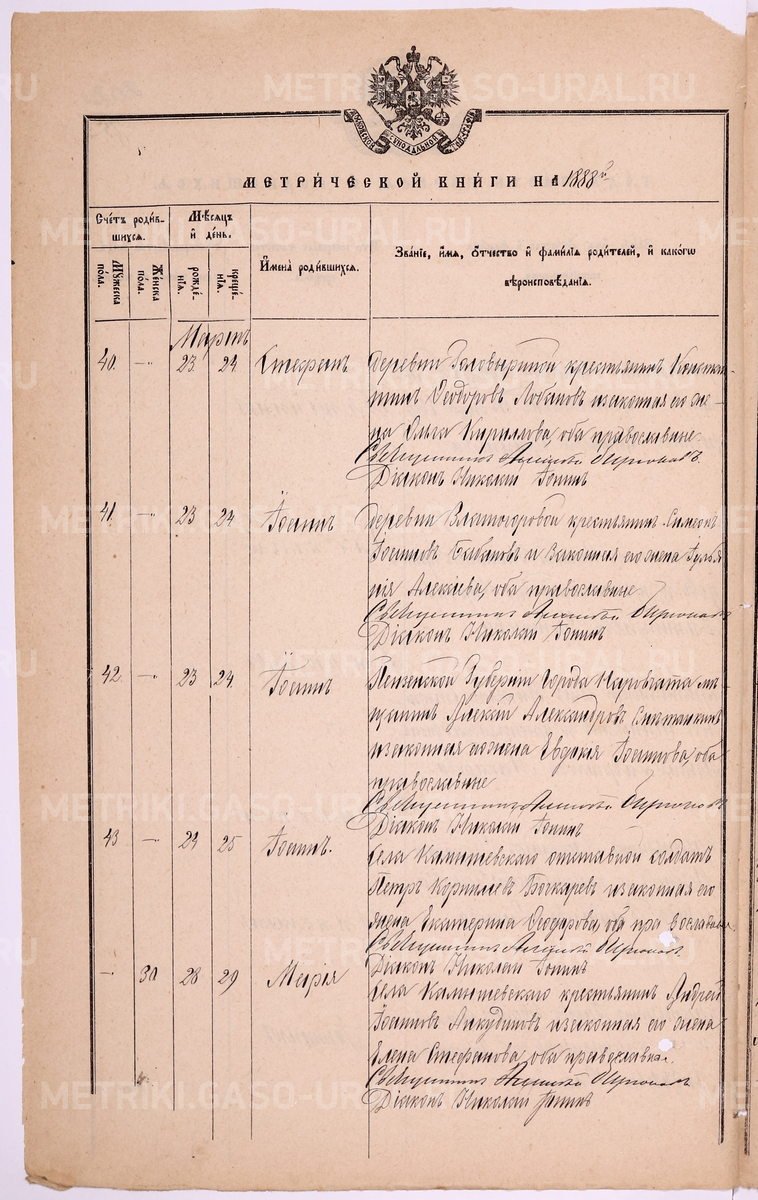 METRIKI.GASO-URAL.RU
МЕТРИ́ЧЕСКОЙ КНИ́ГИ НА 1888й
Сче́тъ роди́в-
шихся.
Му́жеска
по́ла.
Же́нска
по́ла.
Мѣ́сяцъ
и҆ де́нь.
рожде́-
нїя.
креще́-
нїя.
И҆мена̀ роди́вшихся.
Зва́нїе, и҆́мя, ѻ҆́тчество и҆ фами́лїя роди́телей, и҆ како́гѡ
вѣроисповѣ́данїя.
Мартъ
40. — 23. 24. Стефанъ Деревни Головыриной крестьянинъ Констан-
тинъ Ѳеодоровъ Лобановъ и законная его же-
на Ольга Кириллова, оба православные
Священникъ
Діаконъ Николай
41. — 23 24 Іоаннъ Деревни крестьянинъ Симеонъ
Іоанновъ Бабановъ и законная его жена
нія Алексіева, оба православные
Священникъ
Діаконъ Николай
42. — 23 24. Іоаннъ Пензенской Губерніи Города Наровчата мѣ-
щанинъ Алексій Александровъ
и законная его жена Евдокія Іоаннова, оба
православные
Священникъ
Діаконъ Николай
43 — 24 25 Іоаннъ. Села Камышевскаго отставной солдатъ
Петръ Корниліевъ Бочкаревъ и законная его
жена Екатерина Ѳеодорова, оба православные
Священникъ
Діаконъ Николай
— 30 28 29 Марія Села Камышевскаго крестьянинъ Андрей
Іоанновъ Анкудиновъ и законная его жена
Елена Стефанова, оба православные.
Священникъ
Діаконъ Николай